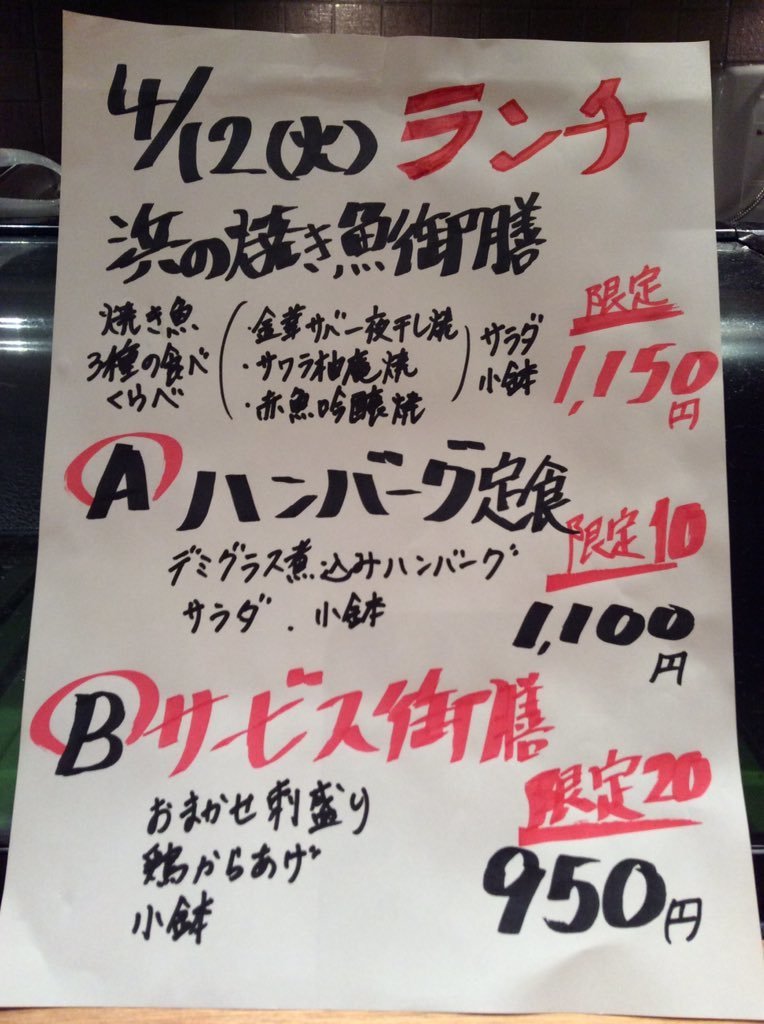 4/12(火) ランチ
浜の焼き魚御膳
焼き魚
3種の食べ
くらべ
・金華サバ一夜干し焼
・サワラ柚庵焼
・赤魚吟醸焼
サラダ
小鉢
限定
1,150円
A ハンバーグ定食
デミグラス煮込みハンバーグ
サラダ. 小鉢
限定10
1,100円
B サービス御膳
おまかせ刺盛り
鶏からあげ
小鉢
限定20
950円